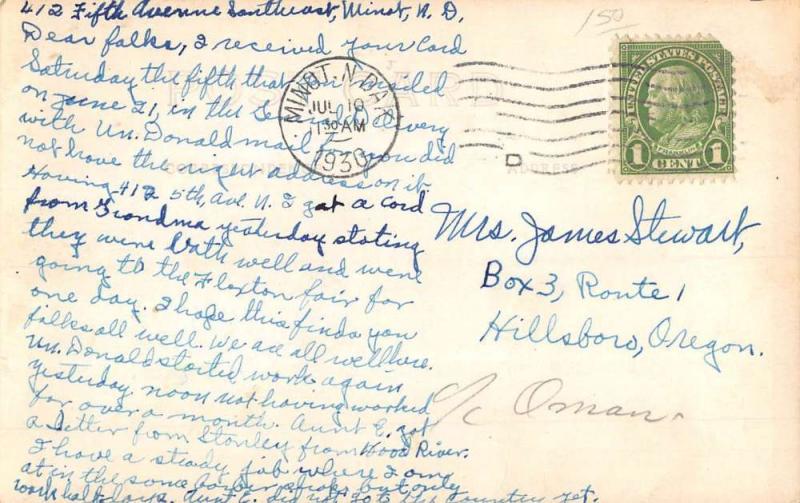 412 Fifth Avenue Southeast, Minot, N. D.
Dear folks, I received your Card
Saturday the fifth that you mailed
on June 21, in the
with Un. Donald mail you did
not have the right address on it
Having 412 5th, Ave. N. I got a Card
from Grandma yesterday stating
they were both well and were
going to the Flaxton fair for
one day. I hope this finds you
folks all well. we are all well here.
Un. Donald started work again
yesterday noon not having worked
for over a month. Aunt E. got
a letter from Stanley from Hood River.
I have a steady job where I am
at in the same barber shop, but only
work half days. Aunt E. did not go to the Country yet.
150
POST CARD
CORRESPONDENCE
ADDRESS
MINOT, N. DAK.
JUL 10
1 30 AM
1930
D
UNITED STATES POSTAGE
FRANKLIN
1 CENT 1
Mrs. James Stewart,
Box 3, Route 1
Hillsboro, Oregon.
c/o Oman